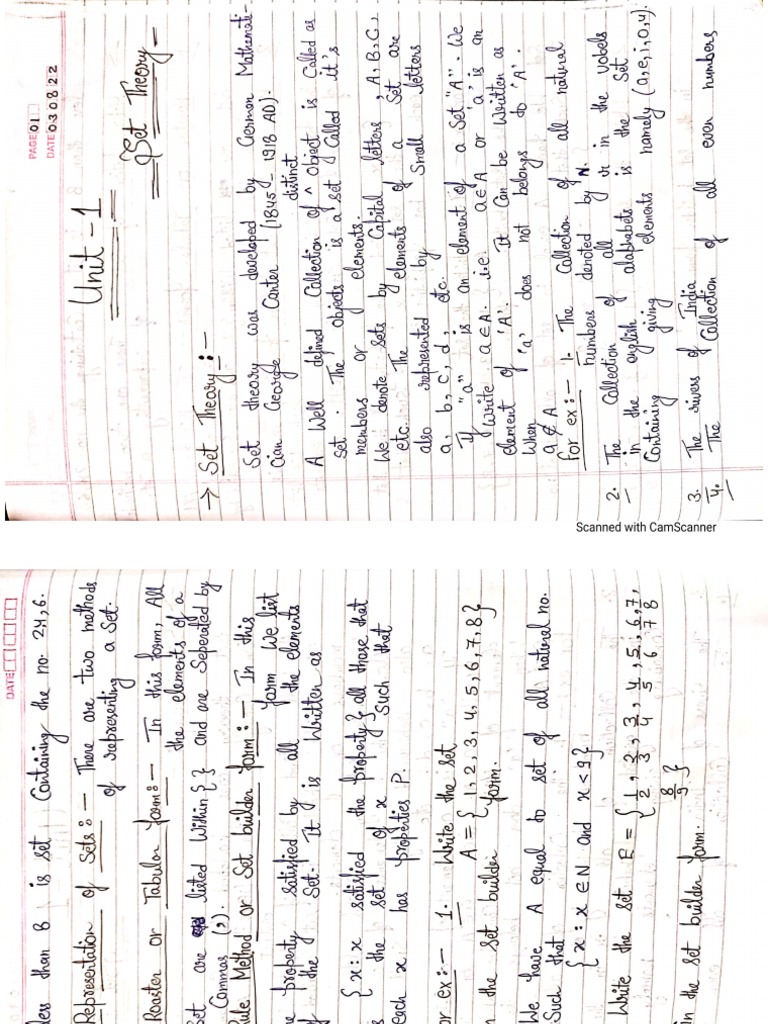 PAGE 01
DATE 03 08 22
Unit - 1
(Set Theory -
→ Set Theory :-
Set theory was developed by German Mathemati-
cian George Canter (1845 - 1918 AD).
distinct
A Well defined Collection of ^ Object is Called as
set. The objects is a set Called it's
members or elements.
We denote sets by Capital letters, A, B, C,
etc. The elements of a Set are
also represented by Small letters
a, b, c, d, etc.
If "a" is an element of a Set "A". We
Write a ∈ A. i.e. a ∈ A or 'a' is an
element of 'A'. It Can be Written as
When 'a' does not belongs to 'A'.
a ∉ A
For ex :- 1. The Collection of all natural
numbers denoted by N.
2. The Collection of all in the vobels
in the english alaphabets is the Set
Containing giving elements namely (a, e, i, o, u).
3. The rivers of India
4. The Collection of all even numbers
Scanned with CamScanner
DATE
less than 8 is set Containing the no. 2,4,6.
Representation of Sets :- There are two methods
of representing a Set.
Roaster or Tabular form :- In this form, All
the elements of a
Set are listed Within { } and are Seperated by
Commas (,).
Rule Method or Set builder form :- In this
form We list
the property satisfied by all the elements
of the Set. It is Written as
{ x : x satisfied the property } all those that
is the set of x Such that
each x has properties P.
For ex :- 1. Write the set
A = { 1, 2, 3, 4, 5, 6, 7, 8 }
in the set builder form.
We have A equal to set of all natural no.
Such that
{ x : x ∈ N and x < 9 }
Write the set E = { 1/2, 2/3, 3/4, 4/5, 5/6, 6/7, 7/8
8/9 }
in the set builder form.